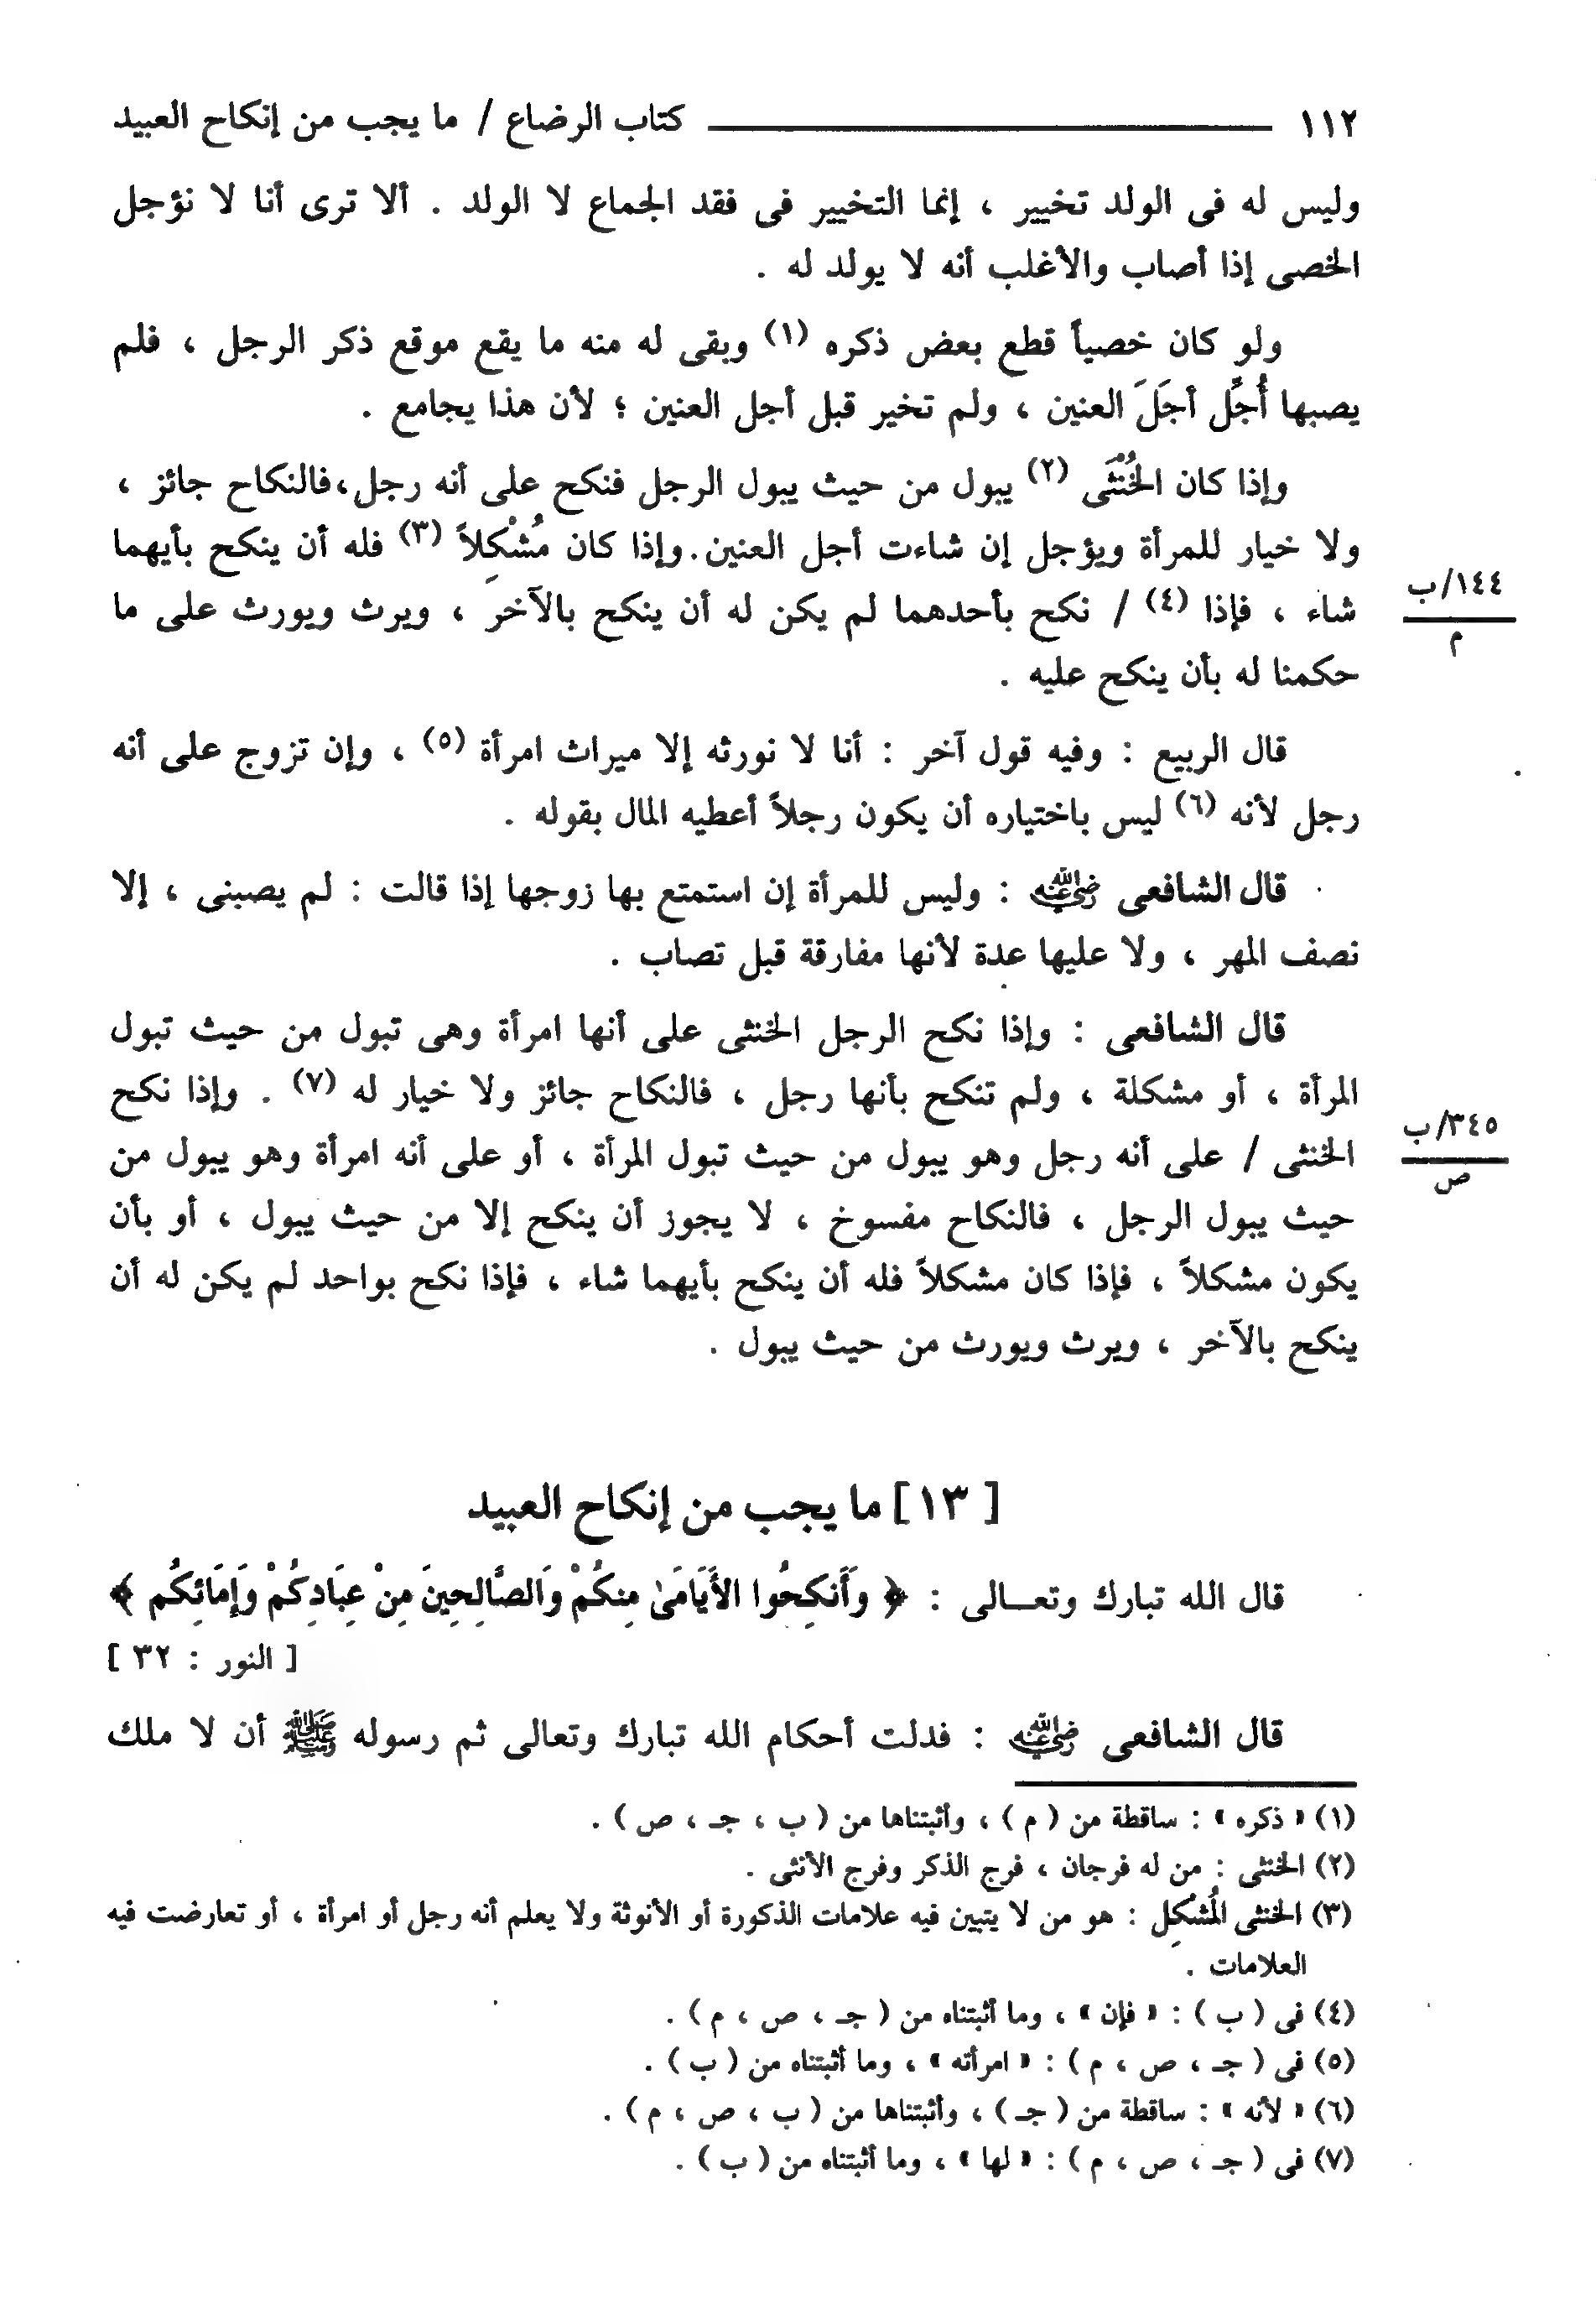 ١١٢ كتاب الرضاع / ما يجب من إنكاح العبيد
وليس له فى الولد تخيير ، إنما التخيير فى فقد الجماع لا الولد . ألا ترى أنا لا نؤجل
الخصى إذا أصاب والأغلب أنه لا يولد له .
ولو كان خصياً قطع بعض ذكره (١) وبقى له منه ما يقع موقع ذكر الرجل ، فلم
يصبها أُجِّل أجَلَ العنين ، ولم تخير قبل أجل العنين ؛ لأن هذا يجامع .
وإذا كان الخُنْثَى (٢) يبول من حيث يبول الرجل فنكح على أنه رجل،فالنكاح جائز ،
ولا خيار للمرأة ويؤجل إن شاءت أجل العنين.وإذا كان مُشْكِلاً (٣) فله أن ينكح بأيهما
شاء ، فإذا (٤) / نكح بأحدهما لم يكن له أن ينكح بالآخر ، ويرث ويورث على ما
١٤٤/ب
م
حكمنا له بأن ينكح عليه .
قال الربيع : وفيه قول آخر : أنا لا نورثه إلا ميراث امرأة (٥) ، وإن تزوج على أنه
رجل لأنه (٦) ليس باختياره أن يكون رجلاً أعطيه المال بقوله .
قال الشافعى رضي الله عنه : وليس للمرأة إن استمتع بها زوجها إذا قالت : لم يصبنى ، إلا
نصف المهر ، ولا عليها عدة لأنها مفارقة قبل تصاب .
قال الشافعى : وإذا نكح الرجل الخنثى على أنها امرأة وهى تبول من حيث تبول
المرأة ، أو مشكلة ، ولم تنكح بأنها رجل ، فالنكاح جائز ولا خيار له (٧) . وإذا نكح
الخنثى / على أنه رجل وهو يبول من حيث تبول المرأة ، أو على أنه امرأة وهو يبول من
٣٤٥/ب
ص
حيث يبول الرجل ، فالنكاح مفسوخ ، لا يجوز أن ينكح إلا من حيث يبول ، أو بأن
يكون مشكلاً ، فإذا كان مشكلاً فله أن ينكح بأيهما شاء ، فإذا نكح بواحد لم يكن له أن
ينكح بالآخر ، ويرث ويورث من حيث يبول .
[ ١٣ ] ما يجب من إنكاح العبيد
قال الله تبارك وتعـالى : ﴿ وَأَنكِحُوا الأَيَامَىٰ مِنكُمْ وَالصَّالِحِينَ مِنْ عِبَادِكُمْ وَإِمَائِكُم ﴾
[ النور : ٣٢ ]
قال الشافعى رضي الله عنه : فدلت أحكام الله تبارك وتعالى ثم رسوله ﷺ أن لا ملك
(١) « ذكره » : ساقطة من ( م ) ، وأثبتناها من ( ب ، جـ ، ص ) .
(٢) الخنثى : من له فرجان ، فرج الذكر وفرج الأنثى .
(٣) الخنثى المُشكِل : هو من لا يتبين فيه علامات الذكورة أو الأنوثة ولا يعلم أنه رجل أو امرأة ، أو تعارضت فيه
العلامات .
(٤) فى ( ب ) : « فإن » ، وما أثبتناه من ( جـ ، ص ، م ) .
(٥) فى ( جـ ، ص ، م ) : « امرأته » ، وما أثبتناه من ( ب ) .
(٦) « لأنه » : ساقطة من ( جـ ) ، وأثبتناها من ( ب ، ص ، م ) .
(٧) فى ( جـ ، ص ، م ) : « لها » ، وما أثبتناه من ( ب ) .